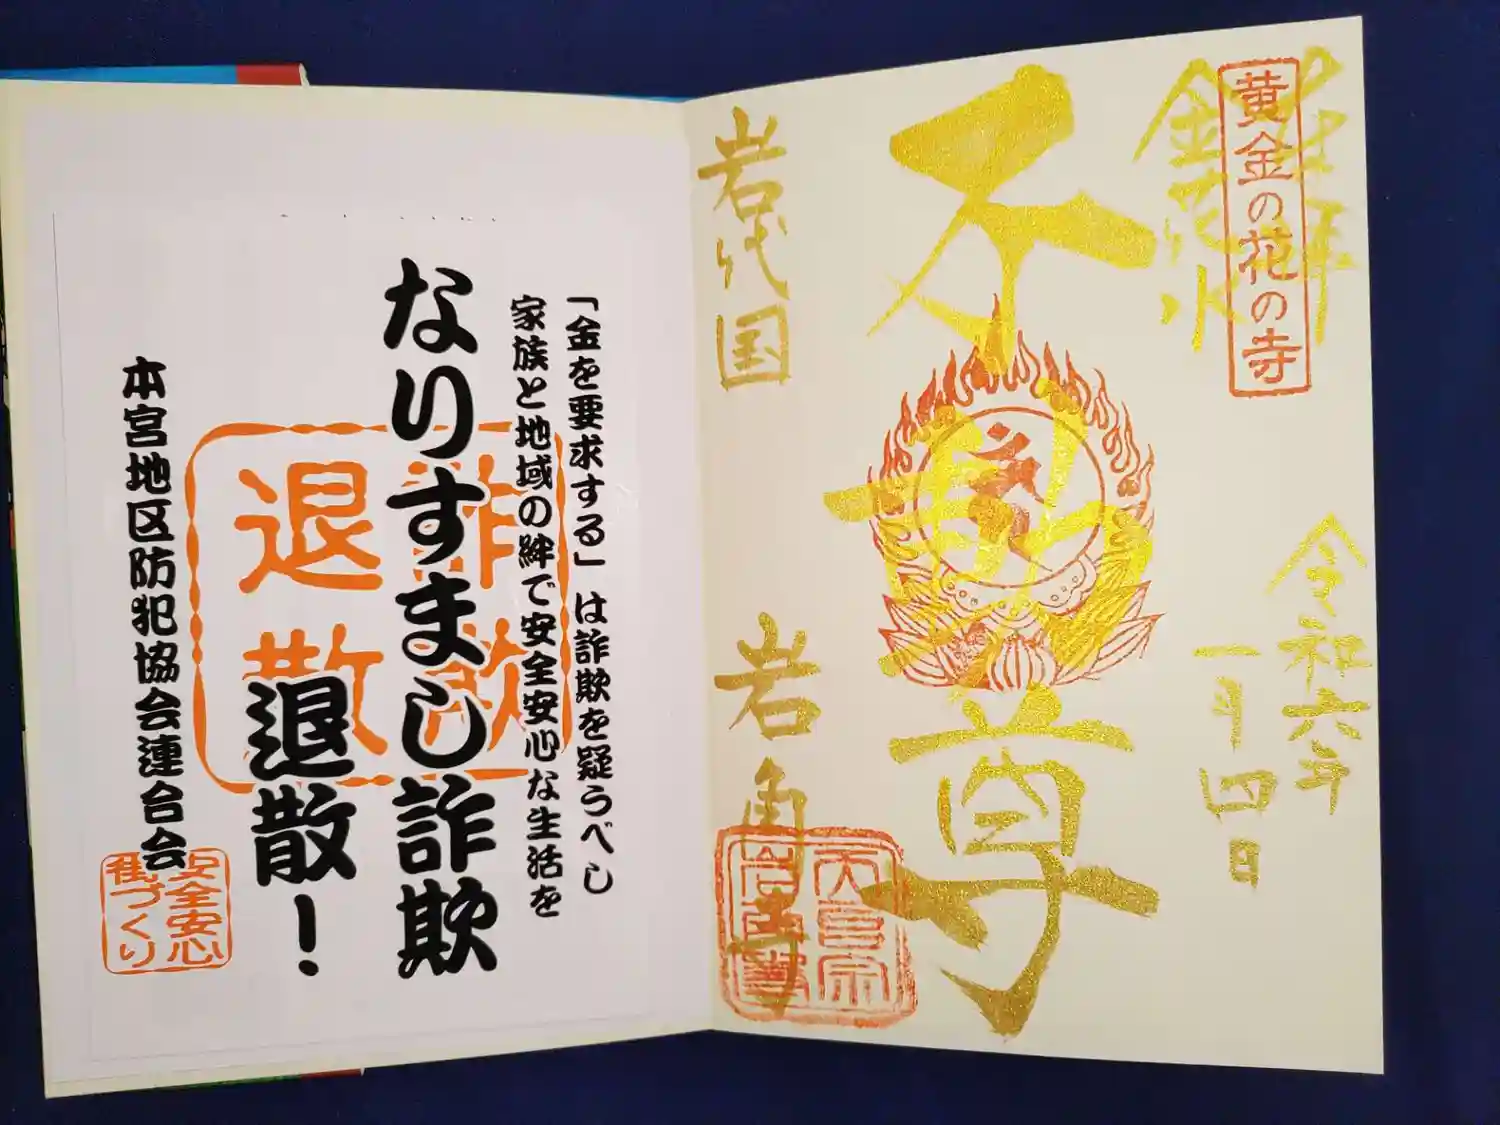 黄金の花の寺
令和六年
一月四日
不動尊
岩代国
岩角寺
天台宗
岩角山寺
「金を要求する」は詐欺を疑うべし
家族と地域の絆で安全安心な生活を
なりすまし詐欺
退散！
詐欺
退散
本宮地区防犯協会連合会
安全安心
街づくり